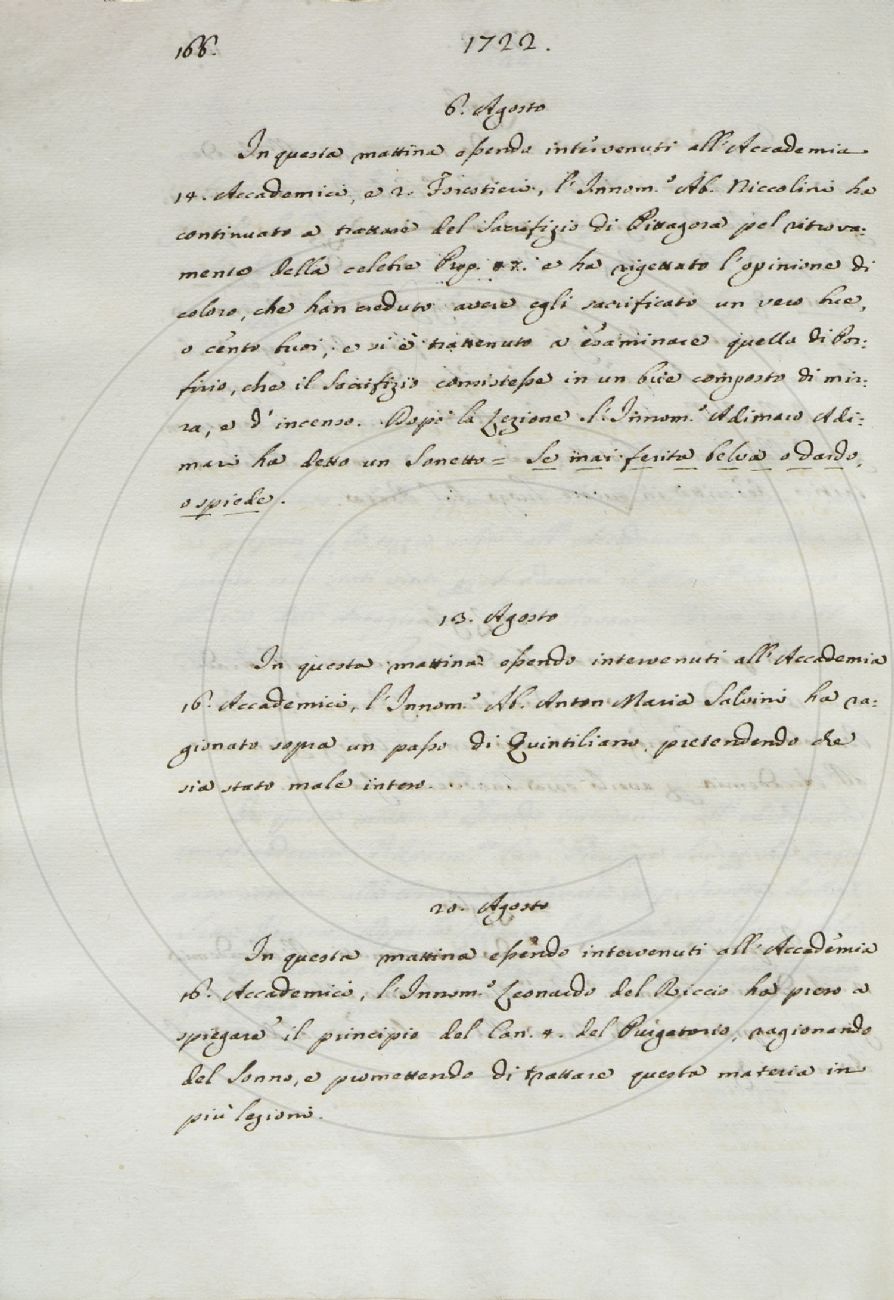 166.
1722.
6. Agosto
In questa mattina essendo intervenuti all'Accademia
14. Accademici, e 2. Forestieri, l'Innom.º Ab. Niccolini ha
continuato a trattare del Sacrifizio di Pittagora pel ritrova:
mento della celebre Prop. 47. e ha rigettato l'opinione di
coloro, che han creduto avere egli sacrificato un vero bue,
o cento buoi, e si è trattenuto a esaminare quella di Por:
firio, che il Sacrifizio consistesse in un bue composto di mir:
ra, e d'incenso. Dopo la Lezione l'Innom.º Adimaro Adi:
mari ha detto un Sonetto = Se mai ferita belva o dardo,
o spiede.
13. Agosto
In questa mattina essendo intervenuti all'Accademia
16. Accademici, l'Innom.º Ab. Anton Maria Salvini ha ra:
gionato sopra un passo di Quintiliano, pretendendo che
sia stato male inteso.
20. Agosto
In questa mattina essendo intervenuti all'Accademia
16. Accademici, l'Innom.º Leonardo del Riccio ha preso a
spiegare il principio del Can. 4. del Purgatorio, ragionando
del Sonno, e promettendo di trattare questa materia in
più lezioni.